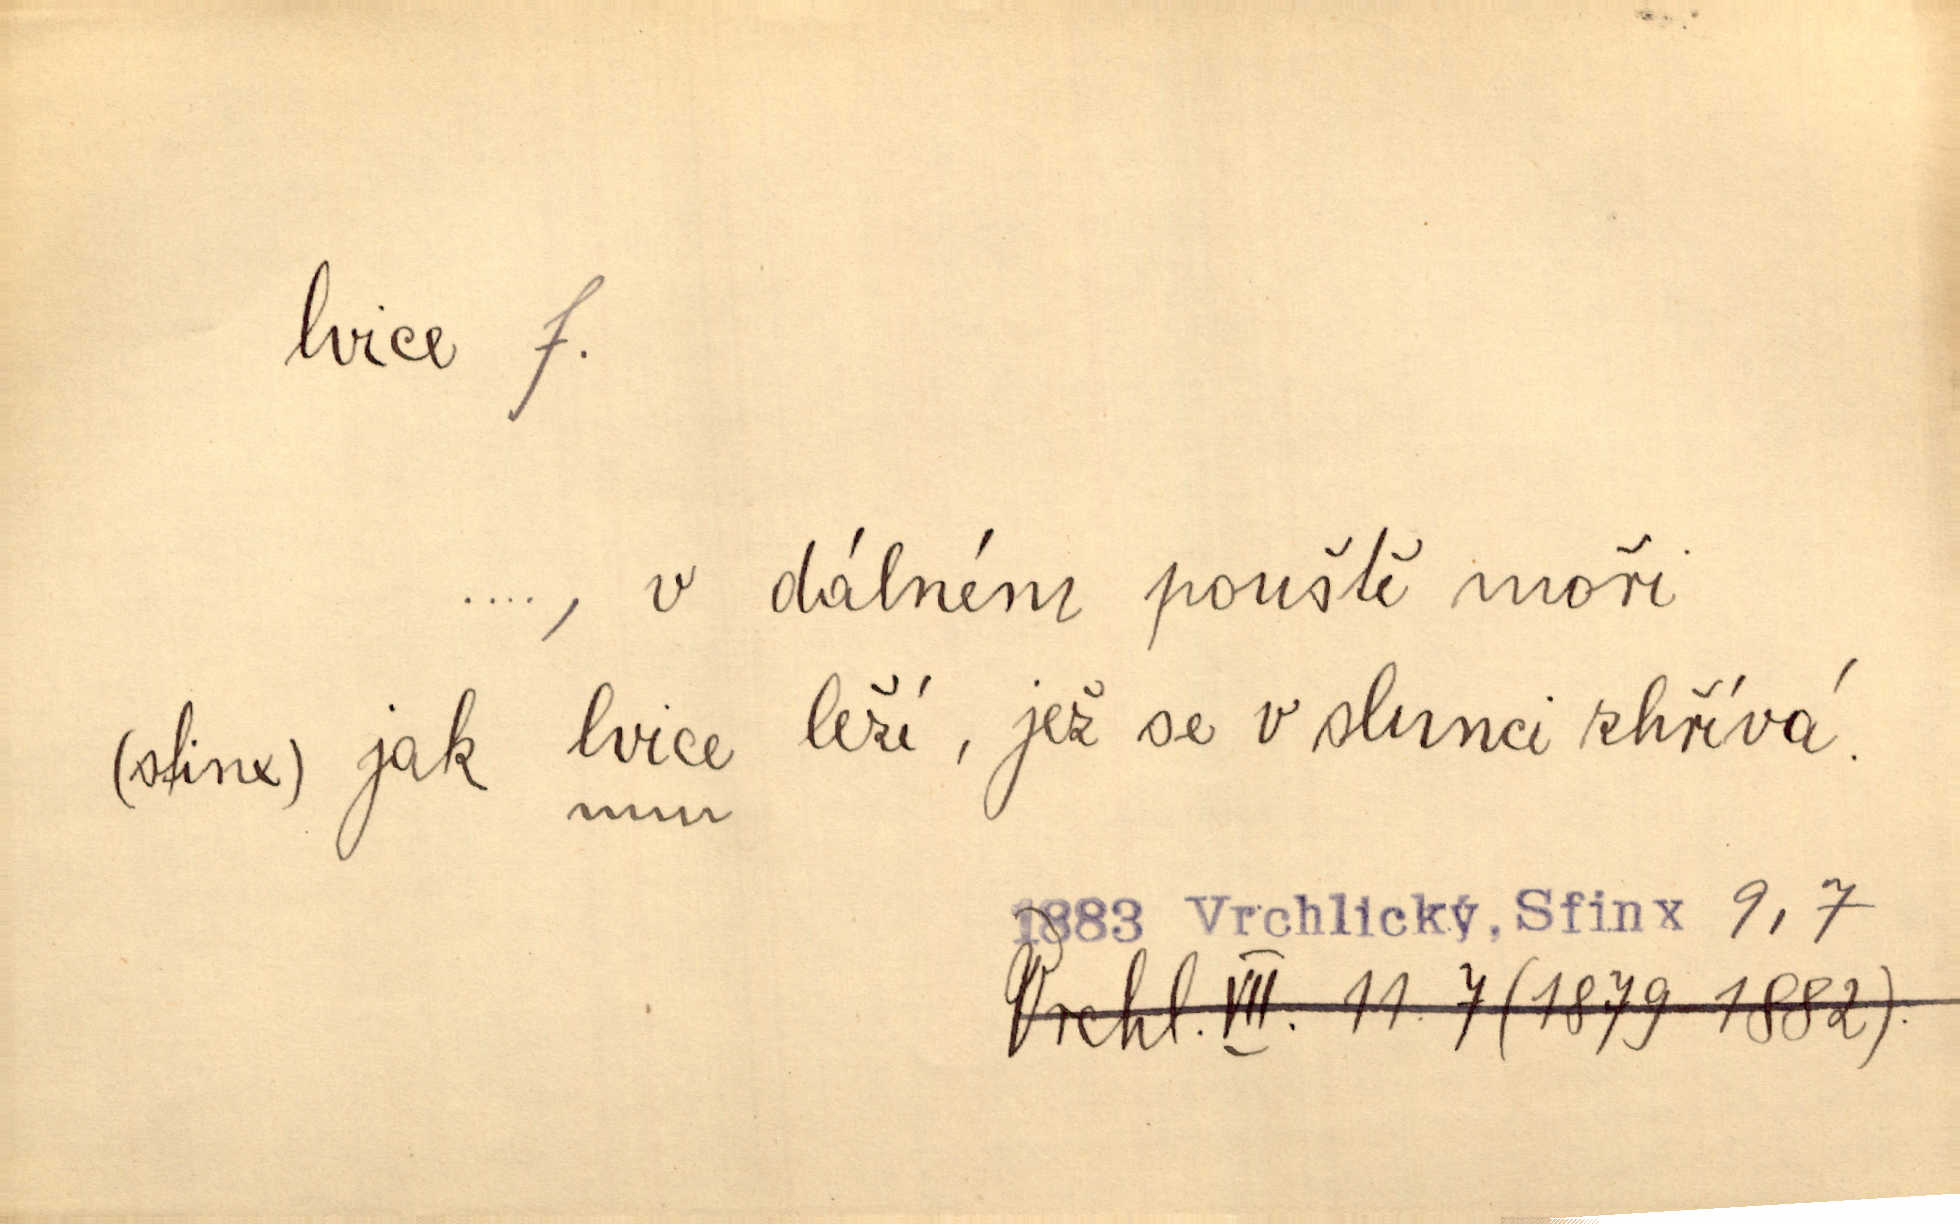 lvice f.
...., v dálném pouště moři
(sfinx) jak lvice leží, jež se v slunci zhřívá.
1883 Vrchlický, Sfinx 9, 7
Vrchl. VII. 11. 7 (1879–1882).